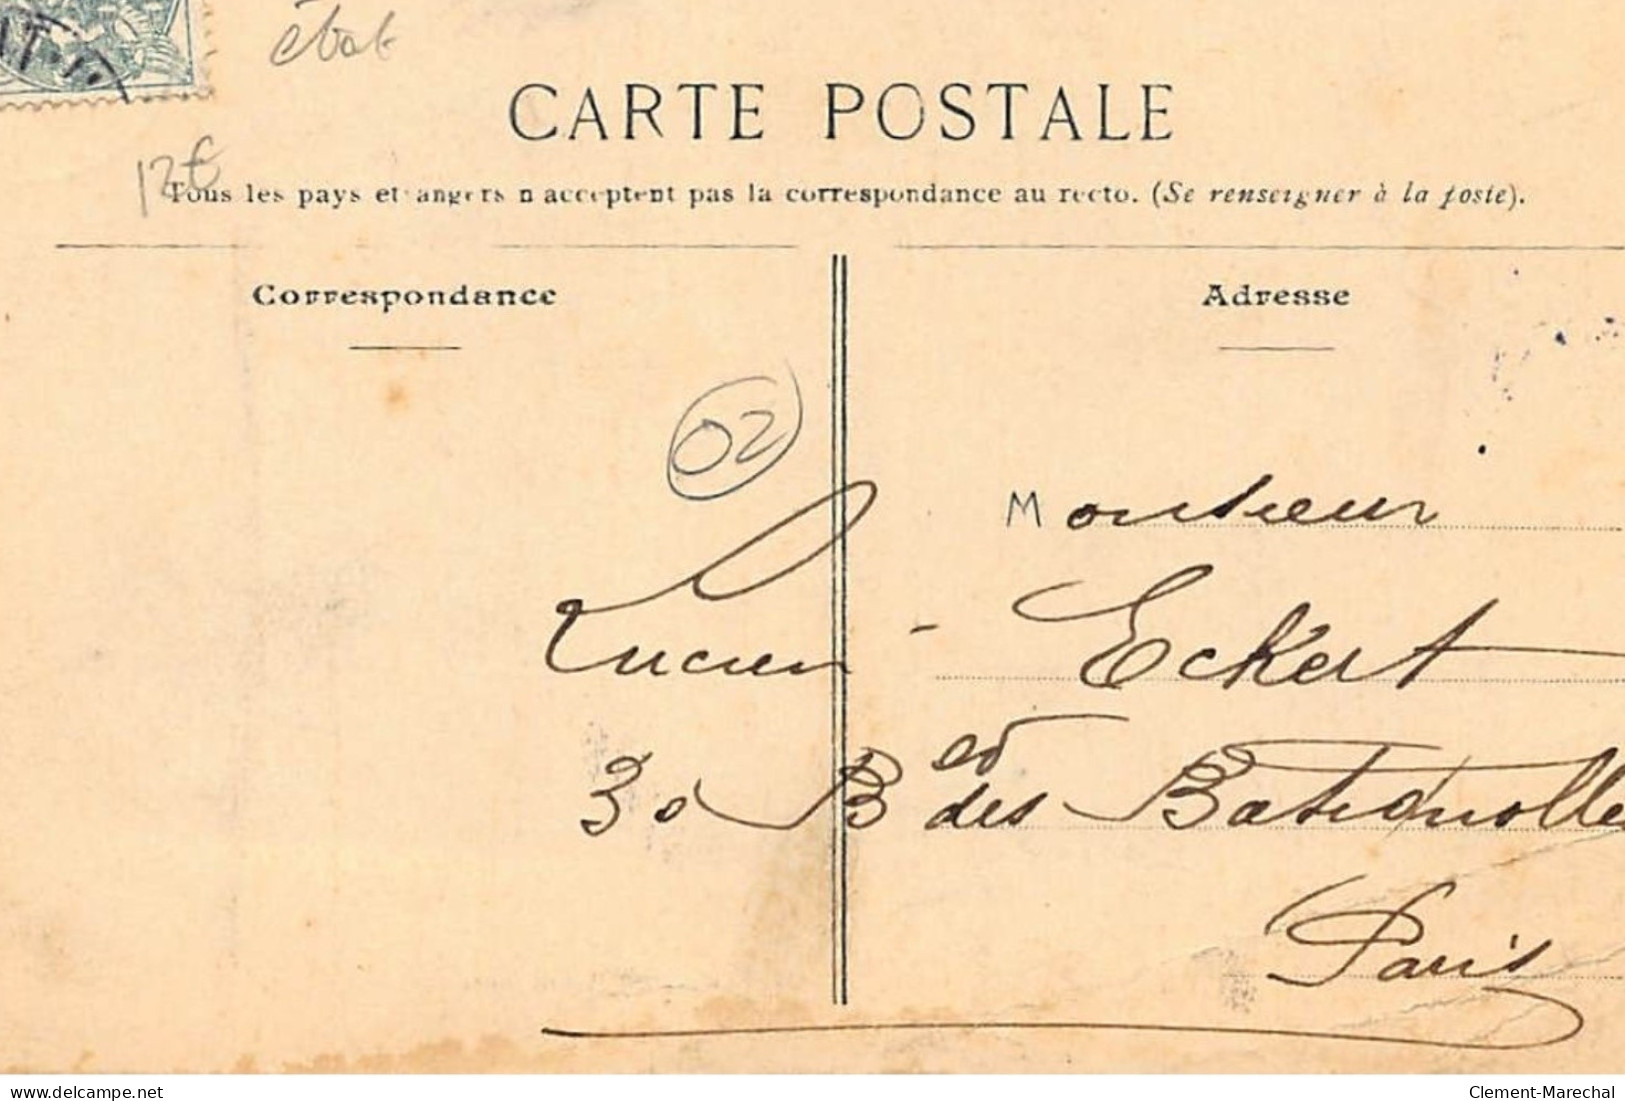 état
CARTE POSTALE
12€
Tous les pays etrangers n acceptent pas la correspondance au recto. (Se renseigner à la poste).
Correspondance
Adresse
02
Monsieur
Lucien - Eckert
30 Bd des Batignolle
Paris
www.delcampe.net
Clement-Marechal